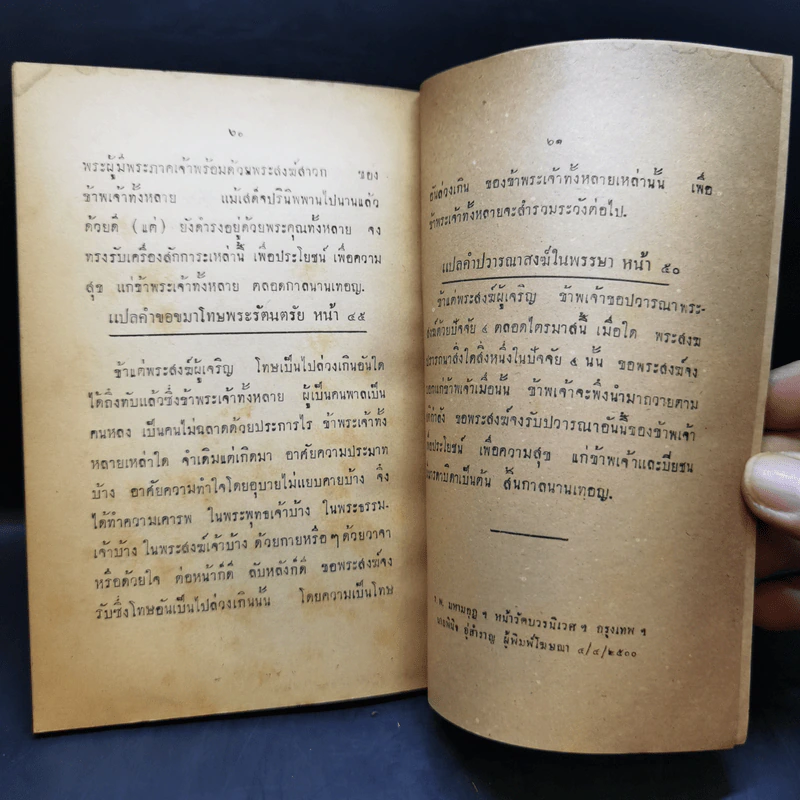 ๖๐
พระผู้มีพระภาคเจ้าพร้อมด้วยพระสงฆ์สาวก ของ
ข้าพเจ้าทั้งหลาย แม้เสด็จปรินิพพานไปนานแล้ว
ด้วยดี (แต่) ยังดำรงอยู่ด้วยพระคุณทั้งหลาย จง
ทรงรับเครื่องสักการะเหล่านี้ เพื่อประโยชน์ เพื่อความ
สุข แก่ข้าพระเจ้าทั้งหลาย ตลอดกาลนานเทอญ.
แปลคำขอขมาโทษพระรัตนตรัย หน้า ๔๕
ข้าแต่พระสงฆ์ผู้เจริญ โทษเป็นไปล่วงเกินอันใด
ได้ถึงทับแล้วซึ่งข้าพระเจ้าทั้งหลาย ผู้เป็นคนพาลเป็น
คนหลง เป็นคนไม่ฉลาดด้วยประการไร ข้าพระเจ้าทั้ง
หลายเหล่าใด จำเดิมแต่เกิดมา อาศัยความประมาท
บ้าง อาศัยความทำใจโดยอุบายไม่แยบคายบ้าง จึง
ได้ทำความเคารพ ในพระพุทธเจ้าบ้าง ในพระธรรม-
เจ้าบ้าง ในพระสงฆ์เจ้าบ้าง ด้วยกายหรือๆด้วยวาจา
หรือด้วยใจ ต่อหน้าก็ดี ลับหลังก็ดี ขอพระสงฆ์จง
รับซึ่งโทษอันเป็นไปล่วงเกินนั้น โดยความเป็นโทษ
๖๑
อันล่วงเกิน ของข้าพระเจ้าทั้งหลายเหล่านั้น เพื่อ
ข้าพระเจ้าทั้งหลายจะสำรวมระวังต่อไป.
แปลคำปวารณาสงฆ์ในพรรษา หน้า ๕๐
ข้าแต่พระสงฆ์ผู้เจริญ ข้าพเจ้าขอปวารณาพระ-
สงฆ์ด้วยปัจจัย ๔ ตลอดไตรมาสนี้ เมื่อใด พระสงฆ์
ปรารถนาสิ่งใดสิ่งหนึ่งในปัจจัย ๔ นั้น ขอพระสงฆ์จง
บอกแก่ข้าพเจ้าเมื่อนั้น ข้าพเจ้าจะพึงนำมาถวายตาม
ขอพระสงฆ์จงรับปวารณาอันนี้ของข้าพเจ้า
เพื่อประโยชน์ เพื่อความสุข แก่ข้าพเจ้าและปิยชน
มารดาบิดาเป็นต้น สิ้นกาลนานเทอญ.
ร. พ. มหามกุฏ ฯ หน้าวัดบวรนิเวศ ฯ กรุงเทพ ฯ
นายพินิจ อู่สำราญ ผู้พิมพ์โฆษณา ๔/๔/๒๕๐๐